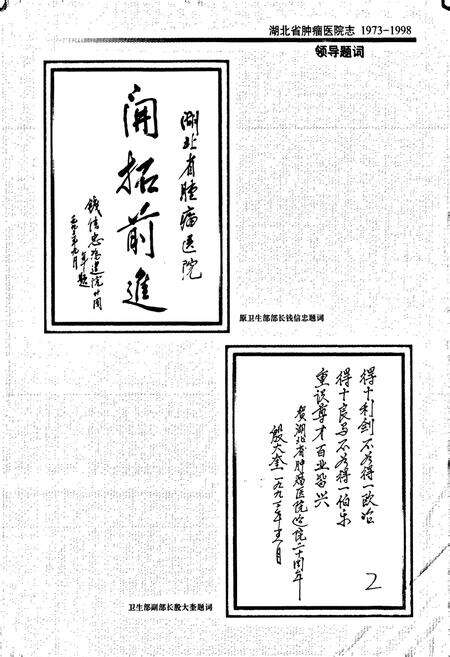 湖北省肿瘤医院志 1973-1998
领导题词
湖北省肿瘤医院
開拓前進
钱信忠为建院廿周
年题
原卫生部部长钱信忠题词
得十利剑不若得一欧冶
得十良马不若得一伯乐
重误尊才百业皆兴
贺湖北省肿瘤医院建院二十周年
殷大奎
卫生部副部长殷大奎题词